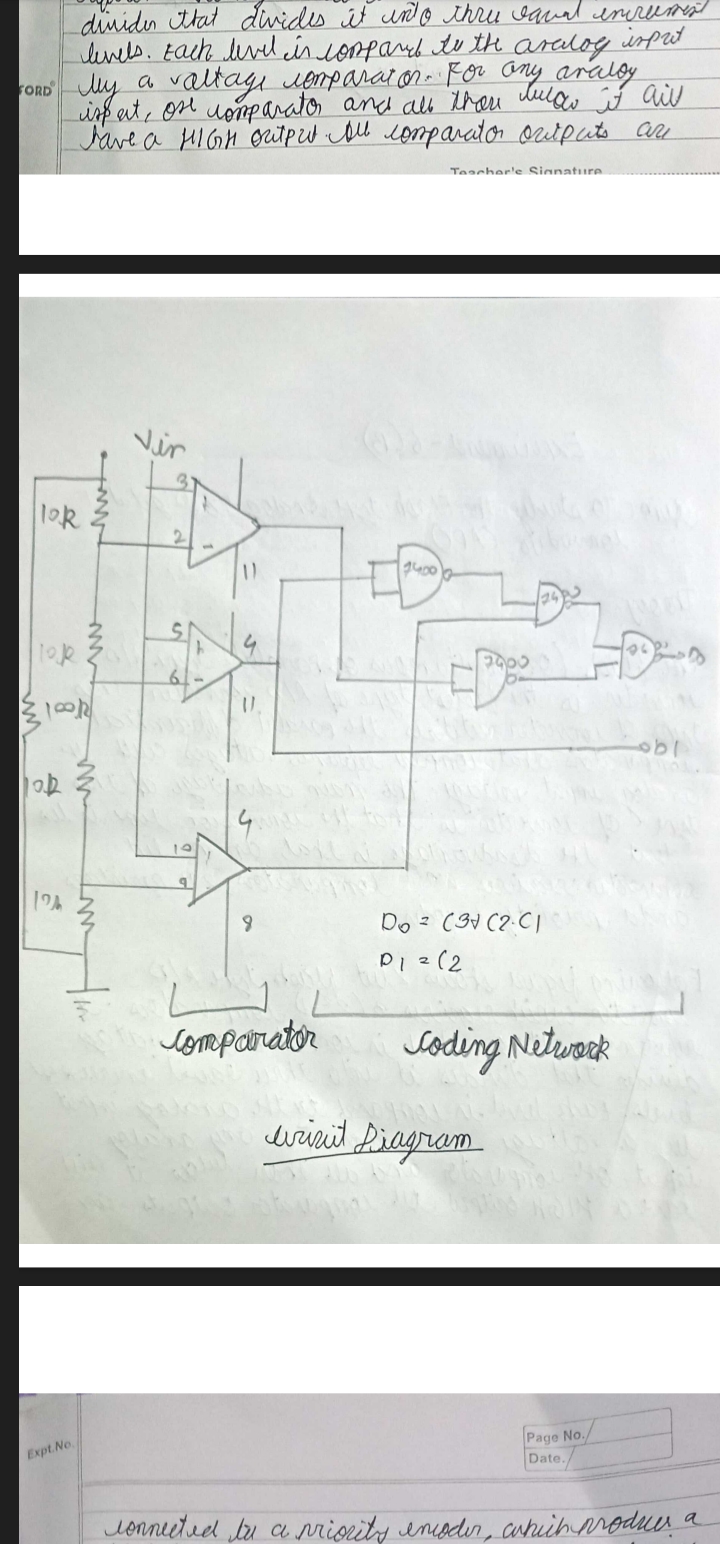 divider that divides it into three equal increment
levels. Each level is compared to the analog input
by a voltage comparator. For any analog
input, one comparator and all those below it will
have a HIGH output. All comparator outputs are
FORD
Teacher's Signature
Vin
3
10K
2
-
11
7400
5
4
6
-
11
7400
100K
10k
obl
4
10
9
8
D0 = C3+C2.C1
D1 = C2
Comparator
Coding Network
Circuit Diagram
Expt.No.
Page No.
Date.
connected to a priority encoder, which produces a